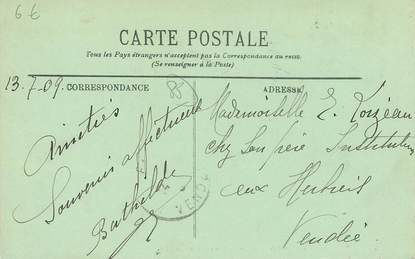 6€
CARTE POSTALE
Tous les Pays étrangers n'acceptent pas la Correspondance au recto.
(Se renseigner à la Poste)
13-7-09. CORRESPONDANCE
ADRESSE
Amitiés
Souvenir affectueux
Bathilde
Mademoiselle E. Loizeau
chez son père Instituteur
aux Herbiers
Vendée
VEND